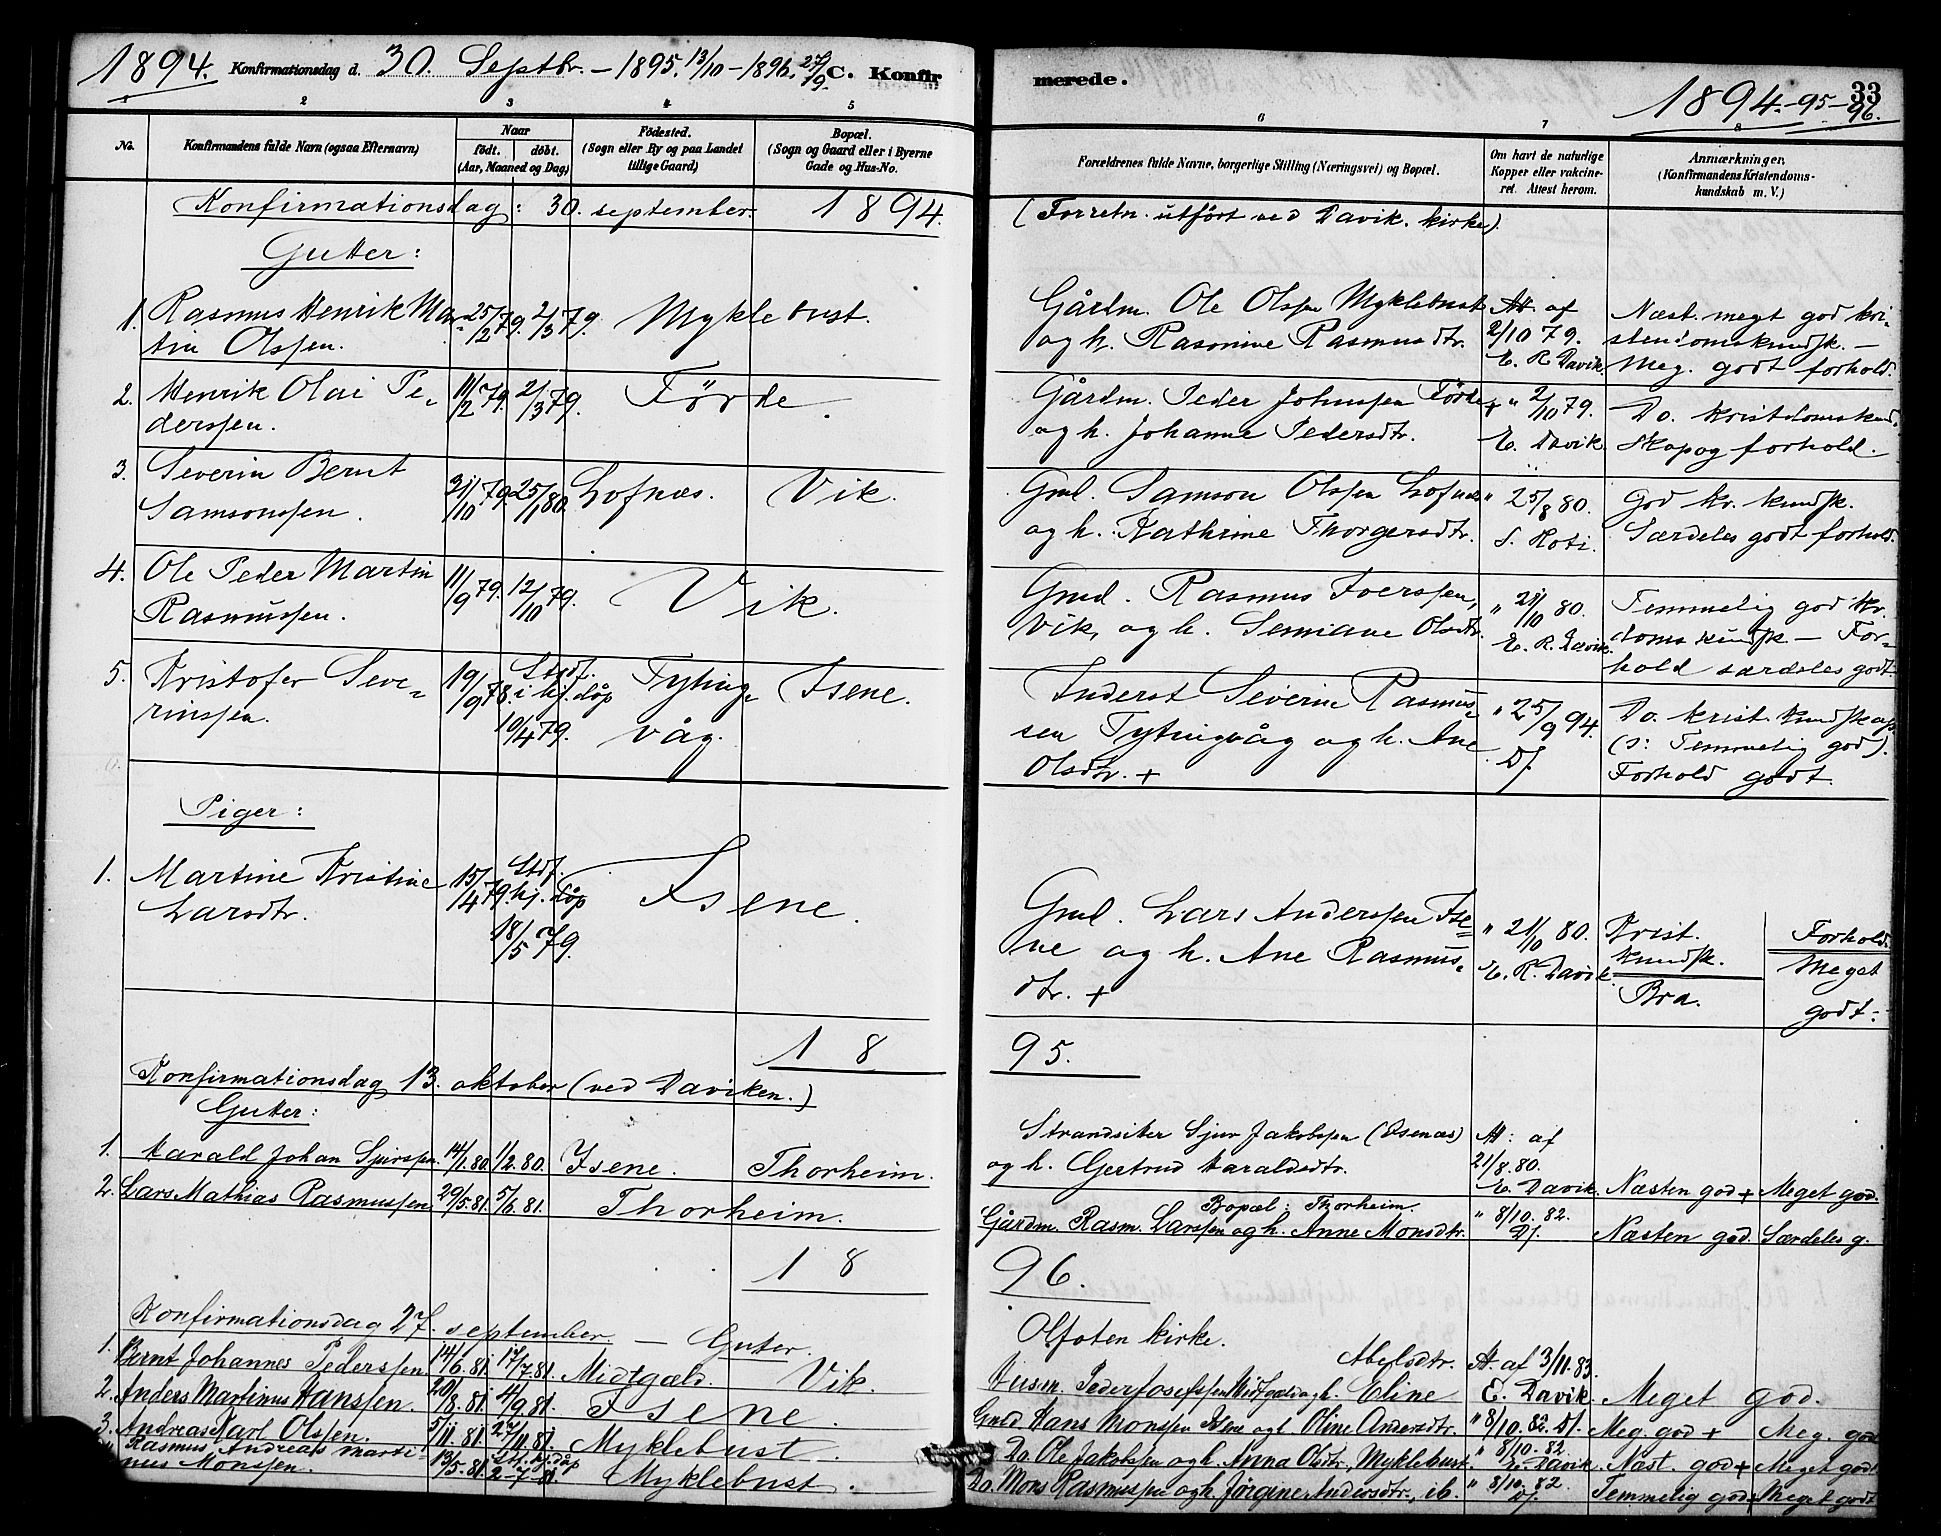 1894. Konfirmationsdag d. 30. Septbr. – 1895. 13/10 – 1896. 27/9. C. Konfir
merede. 33
1894.-95-96.
1 2 3 4 5
6 7 8
No. Konfirmandens fulde Navn (ogsaa Efternavn) Naar födt. döbt. (Aar, Maaned og Dag) Födested. (Sogn eller By og paa Landet tillige Gaard) Bopæl. (Sogn og Gaard eller i Byerne Gade og Hus-No.
Forældrenes fulde Navne, borgerlige Stilling (Næringsvei) og Bopæl. Om havt de naturlige Kopper eller vakcineret. Attest herom. Anmærkninger. (Konfirmandens Kristendomskundskab m. V.)
Konfirmationsdag: 30. september. 1894.
(Forretn. utført ved Davik. kirke).
Gutter:
1. Rasmus Henrik Mar- 25/2 79. 2/3 79. Myklebust.
tin Olssen.
Gårdm. Ole Olssen Myklebust At. af Næst. meget god kri-
og h. Rasmine Rasmusdtr. 2/10 79. stendomskundsk. –
E. R. Davik. Meg. godt forhold.
2. Henrik Olai Pe- 11/2 79. 2/3 79. Førde.
derssen.
Gårdm. Peder Johnssen Förde + " 2/10 79. Do. kristdomskund-
og h. Johanne Pedersdtr. E. Davik. skap og forhold.
3. Severin Bernt 31/10 79. 25/1 80. Lofnæs. Vik.
Samsonssen.
Gml. Samson Olssen Lofnæs " 25/8 80. God kr. kundsk.
og h. Kathrine Thorgersdtr. S. Roti. Særdeles godt forhold.
4. Ole Peder Martin 11/9 79. 12/10 79. Vik.
Rasmussen.
Gmd. Rasmus Iverssen, " 21/10 80. Temmelig god kr.
Vik, og h. Olsdtr. E. R. Davik. domskundsk – For-
hold særdeles godt.
5. Kristofer Seve- 19/9 78. Stdf. Tyting- Isene.
rinssen. i hj. døp våg.
10/4 79.
Inderst Severin Rasmus- " 25/9 94. Do. krist. kundskap
sen Tytingvåg og h. Ane Dj. (ɔ: Temmelig god).
Olsdtr. + Forhold godt.
Piger:
1. Martine Kristine 15/4 79. Stdf. Isene.
Larsdtr. hj. døp
18/5 79.
Gml. Lars Anderssen Ise- " 21/10 80. Krist. Forhold.
ne og h. Ane Rasmus- E. R. Davik. kundsk. Meget
dtr. + Bra. godt.
18 95.
Konfirmationsdag 13. oktober (ved Daviken.)
Gutter:
1. Harald Johan Sjurssen 14/1. 80. 1/2. 80. Isene. Thorheim.
Strandsitter Sjur Jakobssen (Isenæs) At: af
og h. Gertrud Haraldsdtr. 21/8. 80.
E. Davik. Næsten god + Meget god.
Bopæl: Thorheim.
2. Lars Mathias Rasmussen 29/5. 81. 5/6. 81. Thorheim.
Gårdm. Rasm. Larssen og h. Anne Monsdtr. " 8/10. 82. Dj. Næsten god. Særdeles g.
18 96.
Konfirmationsdag 27. september. – Gutter.
Olfoten kirke.
1. Bernt Johannes Pederssen 14/6. 81. 17/7. 81. Midtgæld. Vik.
Abelsdtr. At. af 3/11. 83.
Peder Josefssen Midtgæld og h. Eline E. Davik. Meget god.
2. Anders Martinus Hanssen. 20/8. 81. 4/9 81. Isene.
Gmld Hans Monssen Isene og h. Oline Andersdtr. " 8/10. 82. Dj. Meg. god + Meg. god
3. Andreas Karl Olssen. 5/11. 81. 27/11. 81. Myklebust.
Do. Ole Jakobssen og h. Anna Olsdtr, Myklebust. " 8/10. 82. E. Davik. Næst. god + Meget godt
4. Rasmus Andreas Marti- 13/5. 81. Stf. hj. døp Myklebust.
nus Monssen. 2-7-81.
Do. Mons Rasmussen og h. Jørgine Andersdtr., ib. " 8/10. 82. Dj. Temmelig god + Meget godt